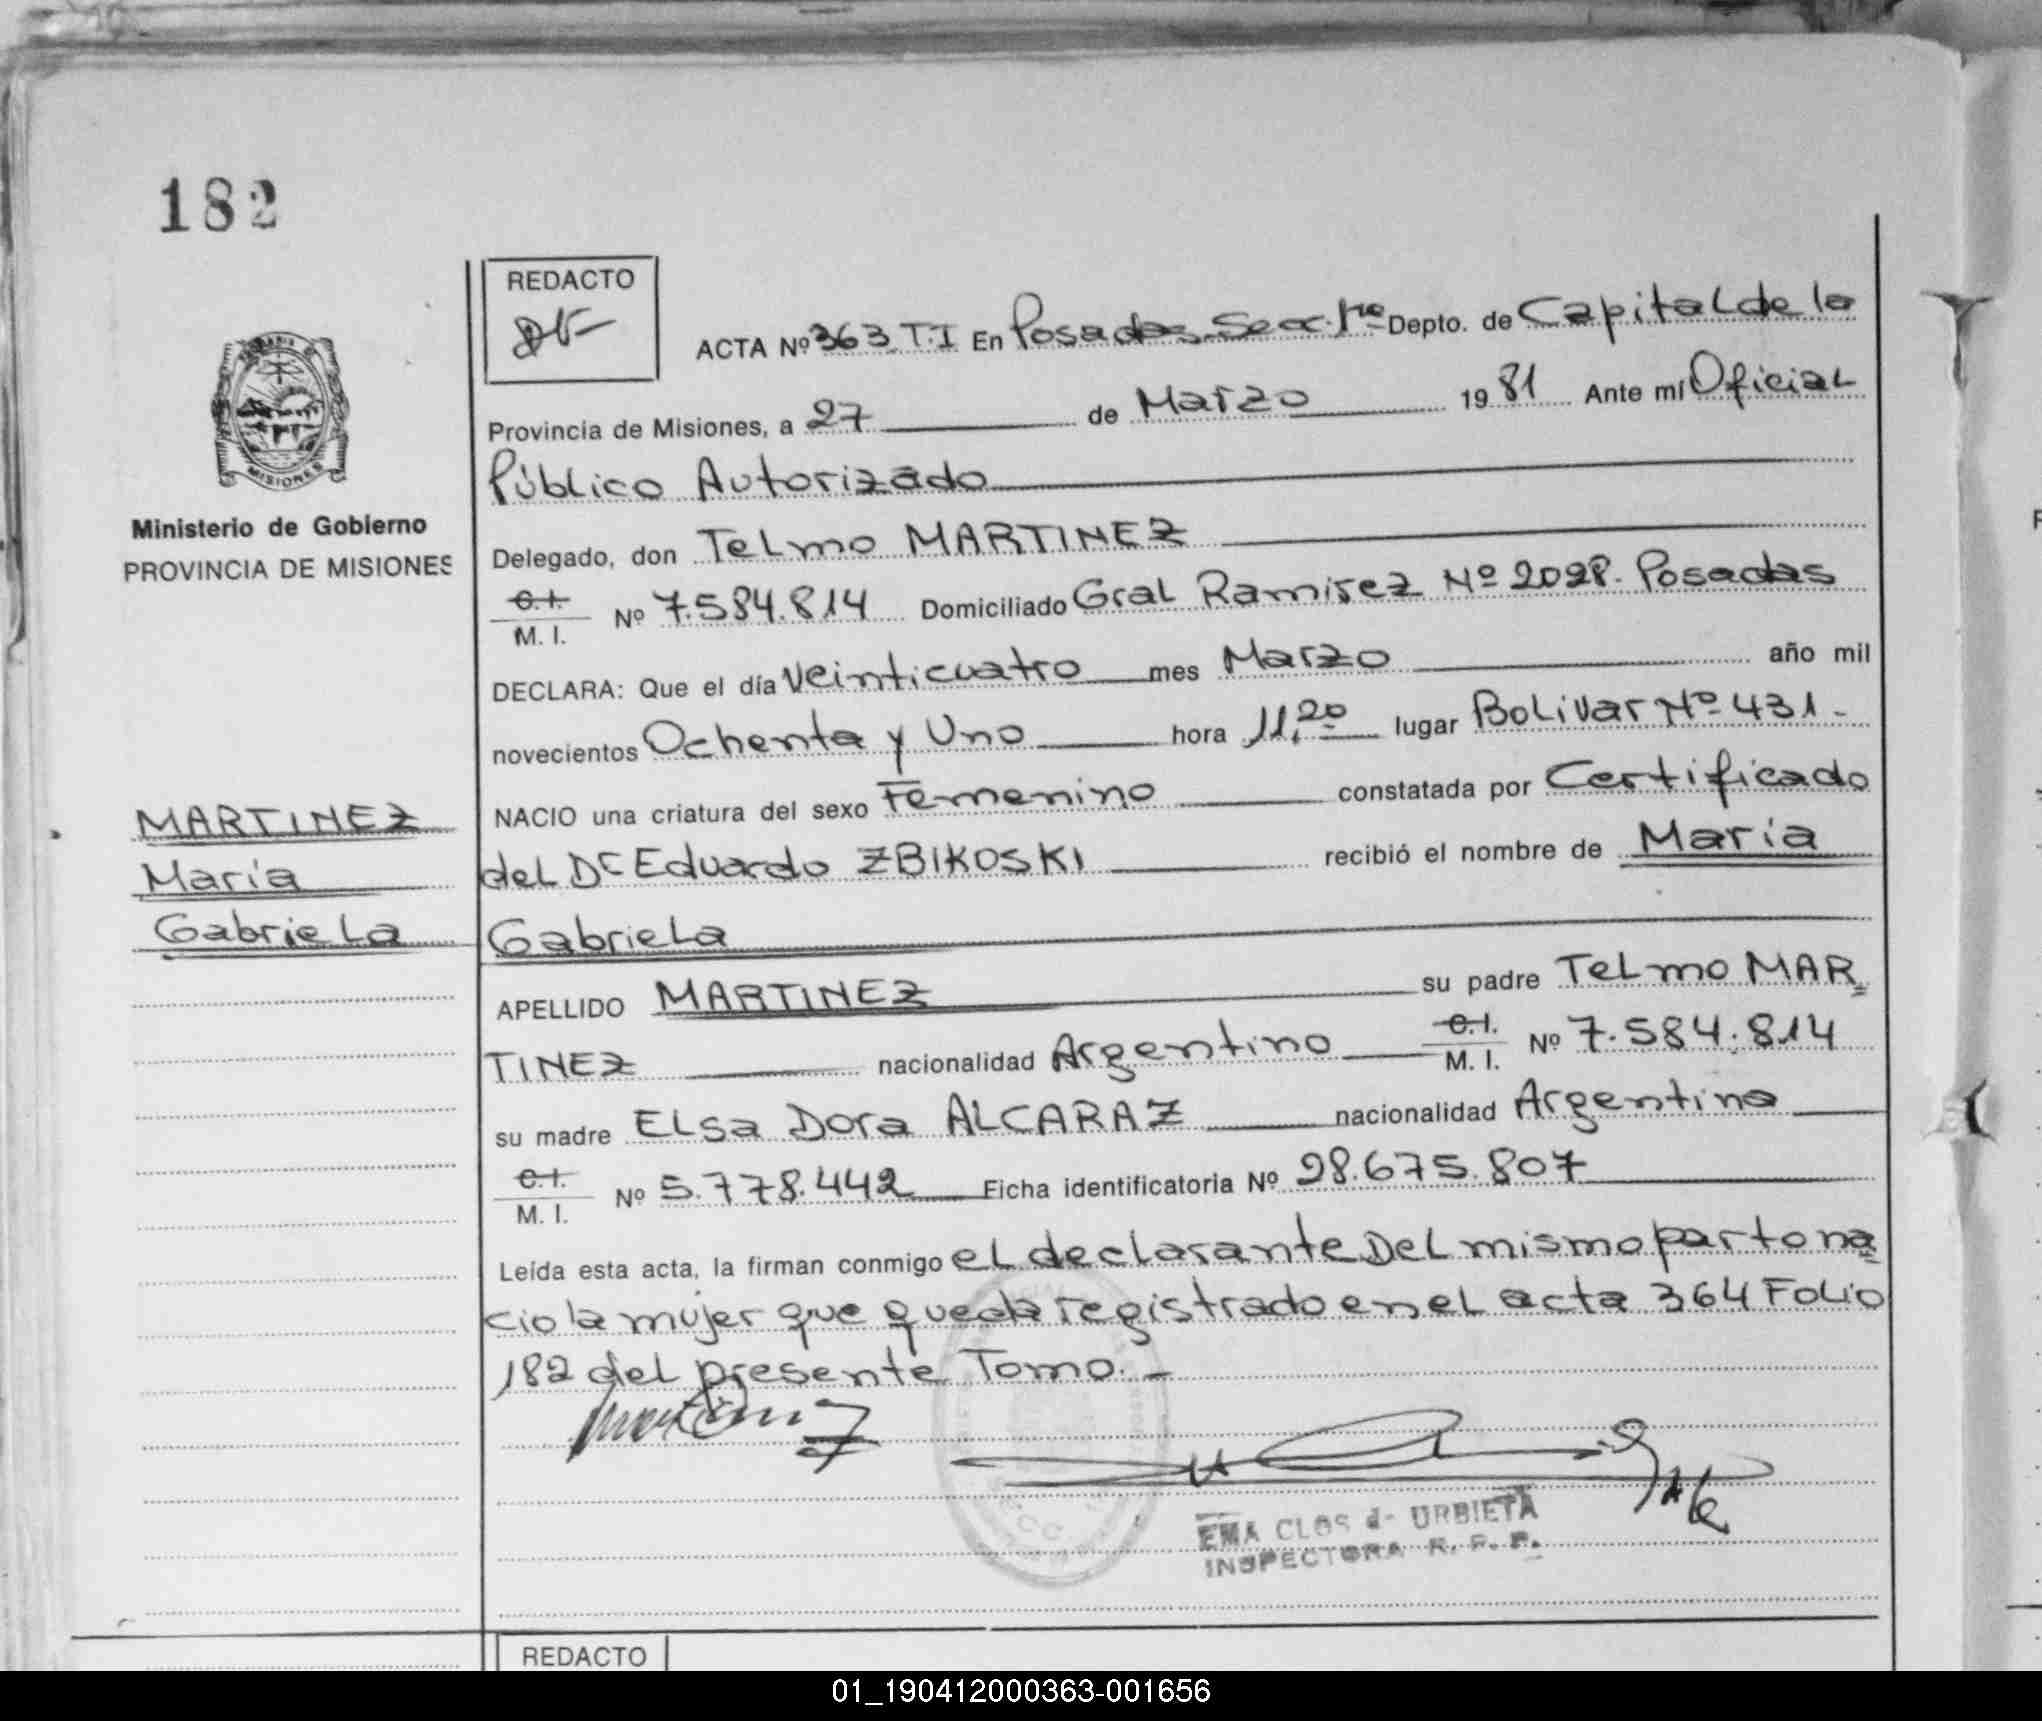 182
REDACTO
ACTA Nº 363 T.I En Posadas Secc. 1ra Depto. de Capital de la
Provincia de Misiones, a 27 de Marzo 1981 Ante mí Oficial
Público Autorizado
MISIONES
Ministerio de Gobierno
PROVINCIA DE MISIONES
Delegado, don Telmo MARTINEZ
C.I.
M. I. Nº 7.584.814 Domiciliado Gral Ramirez Nº 2028. Posadas
DECLARA: Que el día Veinticuatro mes Marzo año mil
novecientos Ochenta y Uno hora 11,20 lugar Bolivar Nº 431.-
NACIO una criatura del sexo Femenino constatada por Certificado
del Dr Eduardo ZBIKOSKI recibió el nombre de María
Gabriela
MARTINEZ
María
Gabriela
APELLIDO MARTINEZ su padre Telmo MAR=
TINEZ nacionalidad Argentino C.I.
M. I. Nº 7.584.814
su madre Elsa Dora ALCARAZ nacionalidad Argentina
C.I.
M. I. Nº 5.778.442 Ficha identificatoria Nº 28.675.807
Leída esta acta, la firman conmigo el declarante Del mismo parto na=
cio la mujer que queda registrado en el acta 364 Folio
182 del presente Tomo.-
EMA CLOS de URBIETA
INSPECTORA R. P. P.
REDACTO
01_190412000363-001656